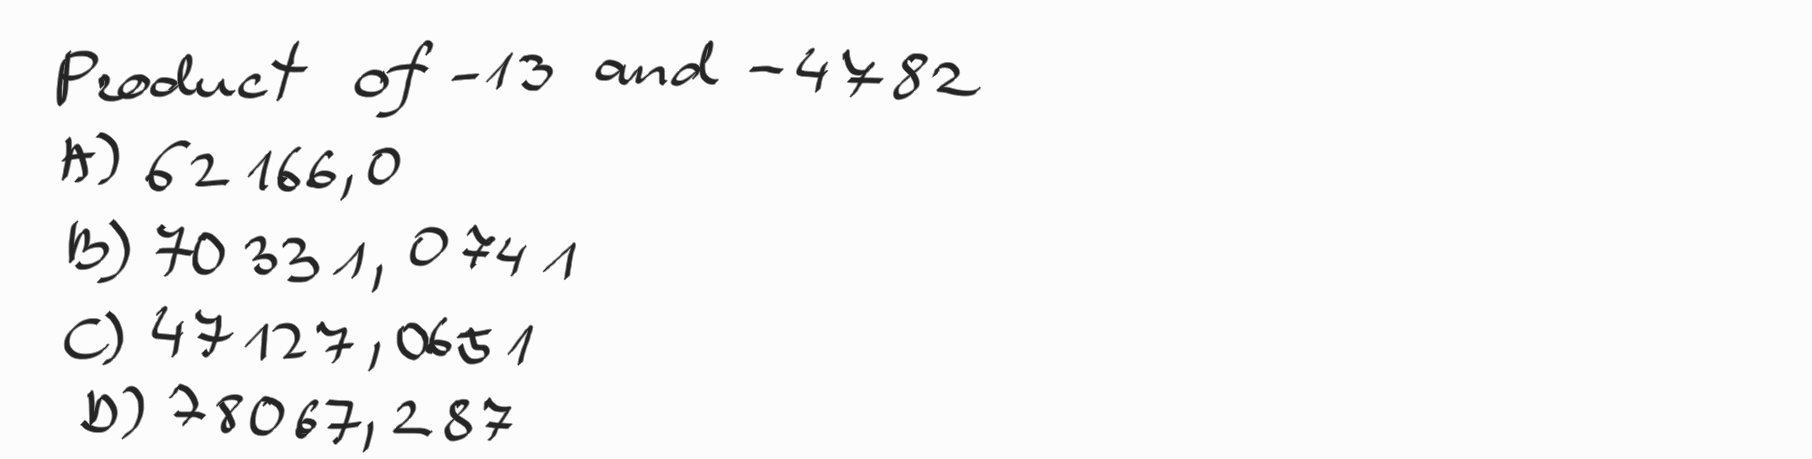 Product of -13 and -4782
A) 62166,0
B) 70331,0741
C) 47127,0651
D) 78067,287